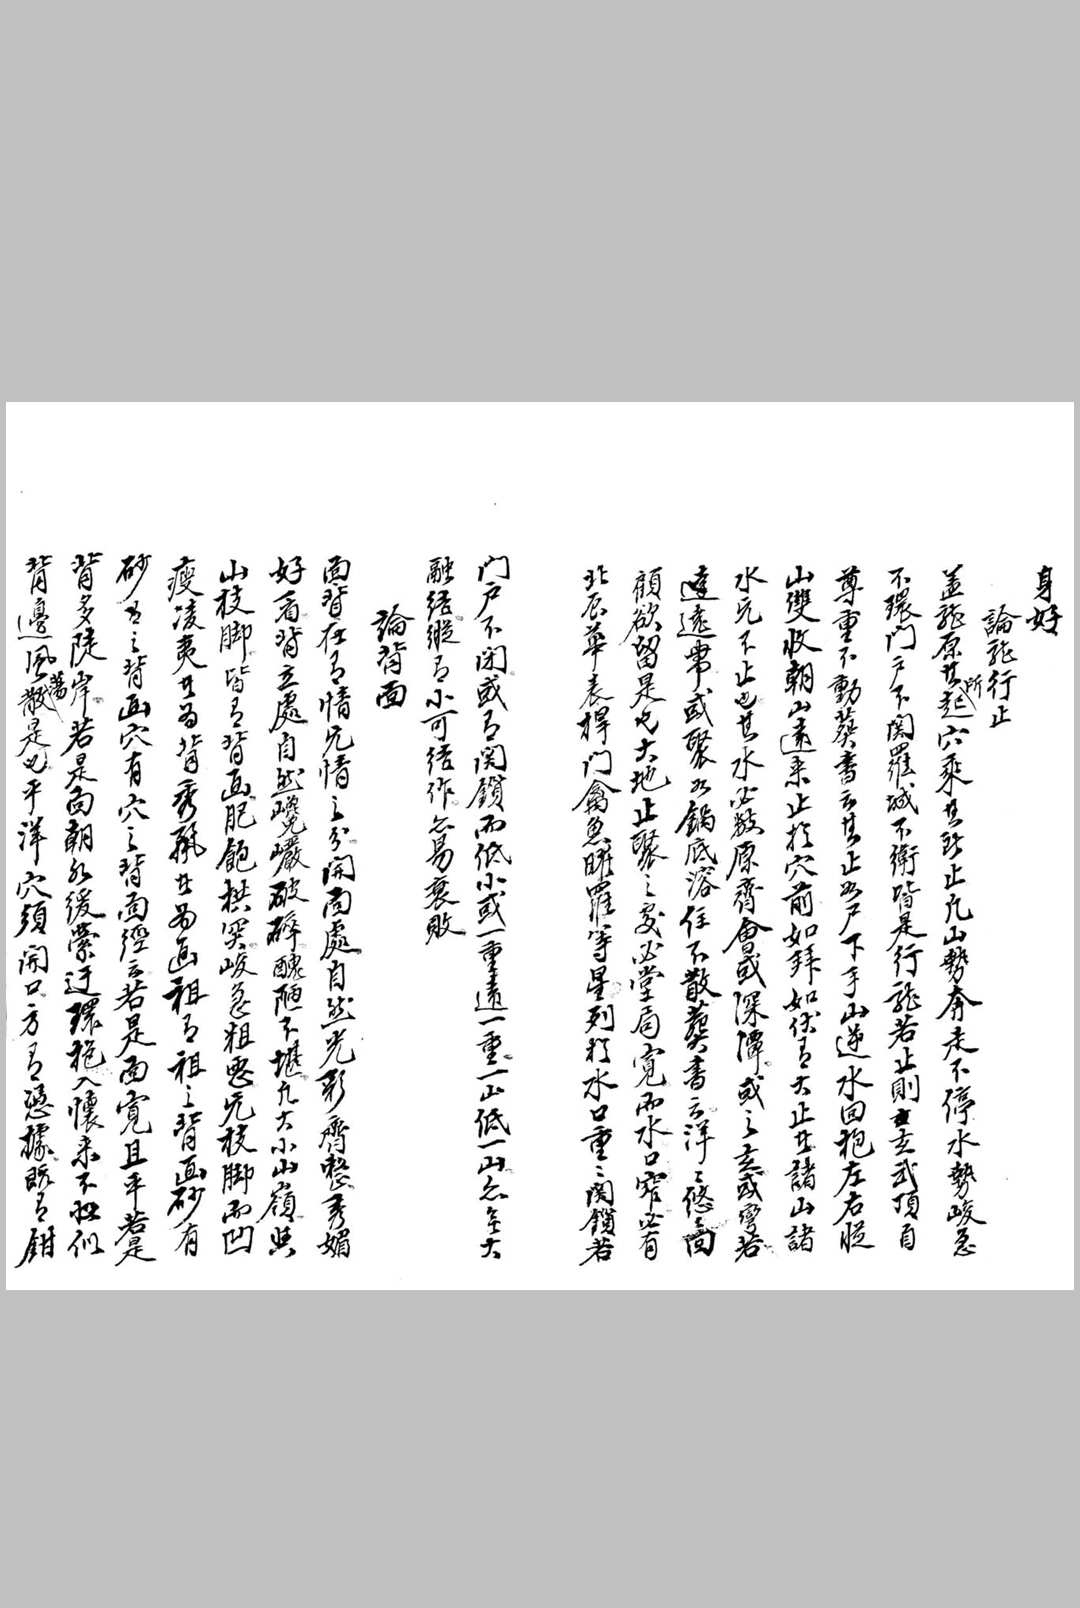 身好
論龍行止
盖龍原其所起穴乘其所止凡山勢奔走不停水勢峻急
不環門户不関羅城不衛皆是行龍若止則玄武頂自
尊重不動葬書云其止如尸下手山逆水回抱左右股
山雙收朝山遠来止扵穴前如拜如伏有大止其諸山諸
水无不止也其水必数原齊會或深潭或之玄或弯若
逹遠帶或聚水鍋底溶住不散葬書云洋〻悠〻
顧欲留是也大地止聚之處必堂局寛而水口窄必有
北辰華表捍門禽魚睢羅等星列扵水口重〻関鎖若
门戸不闭或有関鎖而低小或一重遠一重一山低一山亦無大
融结縦有小可结作亦易衰敗
論背面
面背在有情无情之分開面處自然光彩齊整秀媚
好看背立處自然巉巖破碎醜陋不堪凢大小山嶺與
山枝脚皆有背面肥飽拱突峻急粗恶无枝脚而凹
瘦凌夷其為背秀麗其為面祖有祖之背面砂有
砂有之背面穴有穴之背面經云若是面寛且平若是
背多陡岸若是面朝水缓縈迂環抱入懷来不似
背邉風蕩散是也平洋穴須開口方有憑據既有鉗